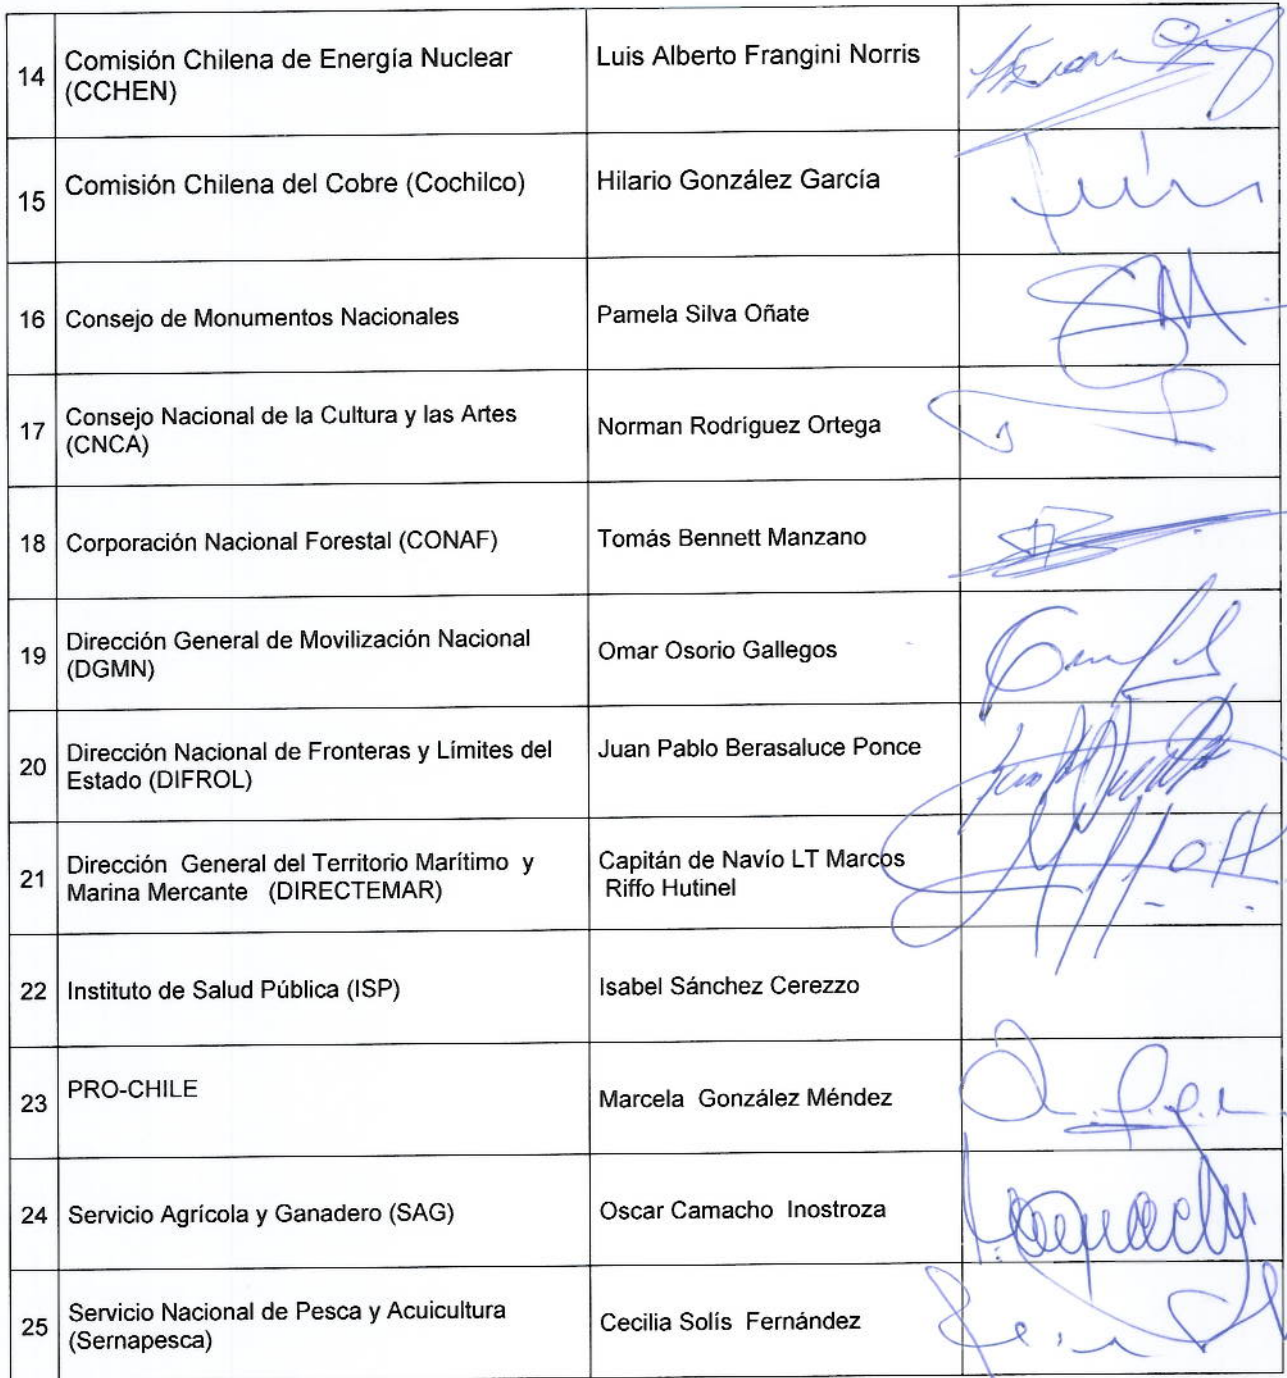 14 Comisión Chilena de Energía Nuclear (CCHEN) Luis Alberto Frangini Norris
15 Comisión Chilena del Cobre (Cochilco) Hilario González García
16 Consejo de Monumentos Nacionales Pamela Silva Oñate
17 Consejo Nacional de la Cultura y las Artes (CNCA) Norman Rodríguez Ortega
18 Corporación Nacional Forestal (CONAF) Tomás Bennett Manzano
19 Dirección General de Movilización Nacional (DGMN) Omar Osorio Gallegos
20 Dirección Nacional de Fronteras y Límites del Estado (DIFROL) Juan Pablo Berasaluce Ponce
21 Dirección General del Territorio Marítimo y Marina Mercante (DIRECTEMAR) Capitán de Navío LT Marcos Riffo Hutinel
22 Instituto de Salud Pública (ISP) Isabel Sánchez Cerezzo
23 PRO-CHILE Marcela González Méndez
24 Servicio Agrícola y Ganadero (SAG) Oscar Camacho Inostroza
25 Servicio Nacional de Pesca y Acuicultura (Sernapesca) Cecilia Solís Fernández